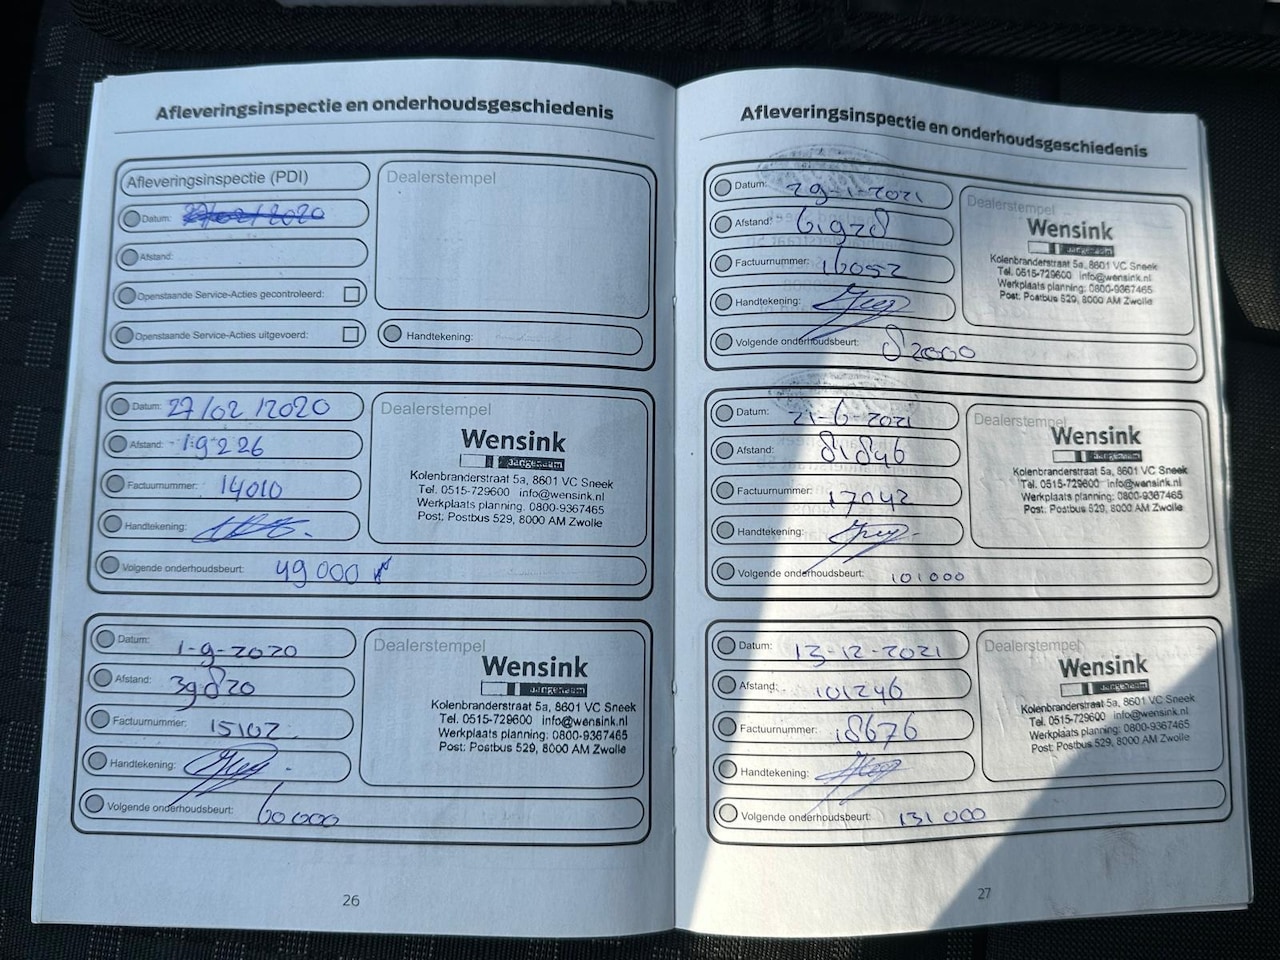 Afleveringsinspectie en onderhoudsgeschiedenis
Afleveringsinspectie (PDI)
Datum: 27/02/2020
Afstand:
Openstaande Service-Acties gecontroleerd:
Openstaande Service-Acties uitgevoerd:
Dealerstempel
Handtekening:
Datum: 27/02/2020
Afstand: 19226
Factuurnummer: 14010
Handtekening:
Volgende onderhoudsbeurt: 49000
Dealerstempel
Wensink
aangenaam
Kolenbranderstraat 5a, 8601 VC Sneek
Tel. 0515-729600 info@wensink.nl
Werkplaats planning: 0800-9367465
Post: Postbus 529, 8000 AM Zwolle
Datum: 1-9-2020
Afstand: 39820
Factuurnummer: 15102
Handtekening:
Volgende onderhoudsbeurt: 60000
Dealerstempel
Wensink
aangenaam
Kolenbranderstraat 5a, 8601 VC Sneek
Tel. 0515-729600 info@wensink.nl
Werkplaats planning: 0800-9367465
Post: Postbus 529, 8000 AM Zwolle
26
Afleveringsinspectie en onderhoudsgeschiedenis
Datum: 29-1-2021
Afstand: 61978
Factuurnummer: 16052
Handtekening:
Volgende onderhoudsbeurt: 82000
Dealerstempel
Wensink
aangenaam
Kolenbranderstraat 5a, 8601 VC Sneek
Tel. 0515-729600 info@wensink.nl
Werkplaats planning: 0800-9367465
Post: Postbus 529, 8000 AM Zwolle
Datum: 21-6-2021
Afstand: 81846
Factuurnummer: 17042
Handtekening:
Volgende onderhoudsbeurt: 101000
Dealerstempel
Wensink
aangenaam
Kolenbranderstraat 5a, 8601 VC Sneek
Tel. 0515-729600 info@wensink.nl
Werkplaats planning: 0800-9367465
Post: Postbus 529, 8000 AM Zwolle
Datum: 13-12-2021
Afstand: 101246
Factuurnummer: 18676
Handtekening:
Volgende onderhoudsbeurt: 131000
Dealerstempel
Wensink
aangenaam
Kolenbranderstraat 5a, 8601 VC Sneek
Tel. 0515-729600 info@wensink.nl
Werkplaats planning: 0800-9367465
Post: Postbus 529, 8000 AM Zwolle
27